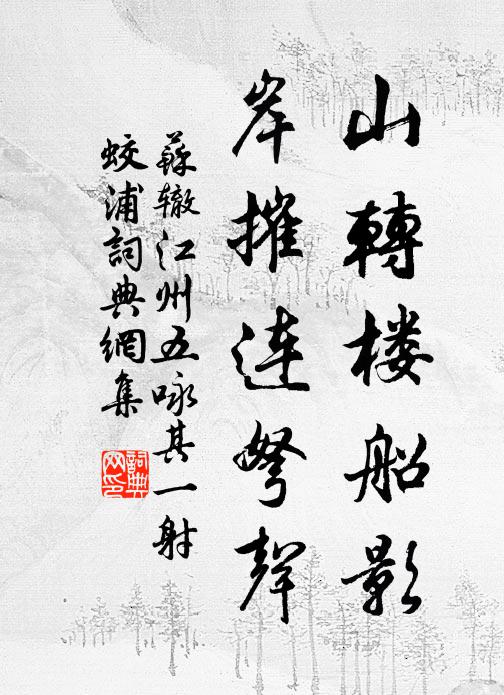 山轉楼船影
岸摧連弩聲
蘇辙江州五咏其一射
蛟浦詞典網集
詞典
网印